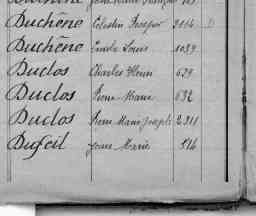 Duchêne Célestin Prosper 2164 D
Duchêne Emile Louis 1039
Duclos Charles Henri 629
Duclos Pierre Marie 632
Duclos Pierre Marie Joseph 2311
Duféil Jean Marie 516